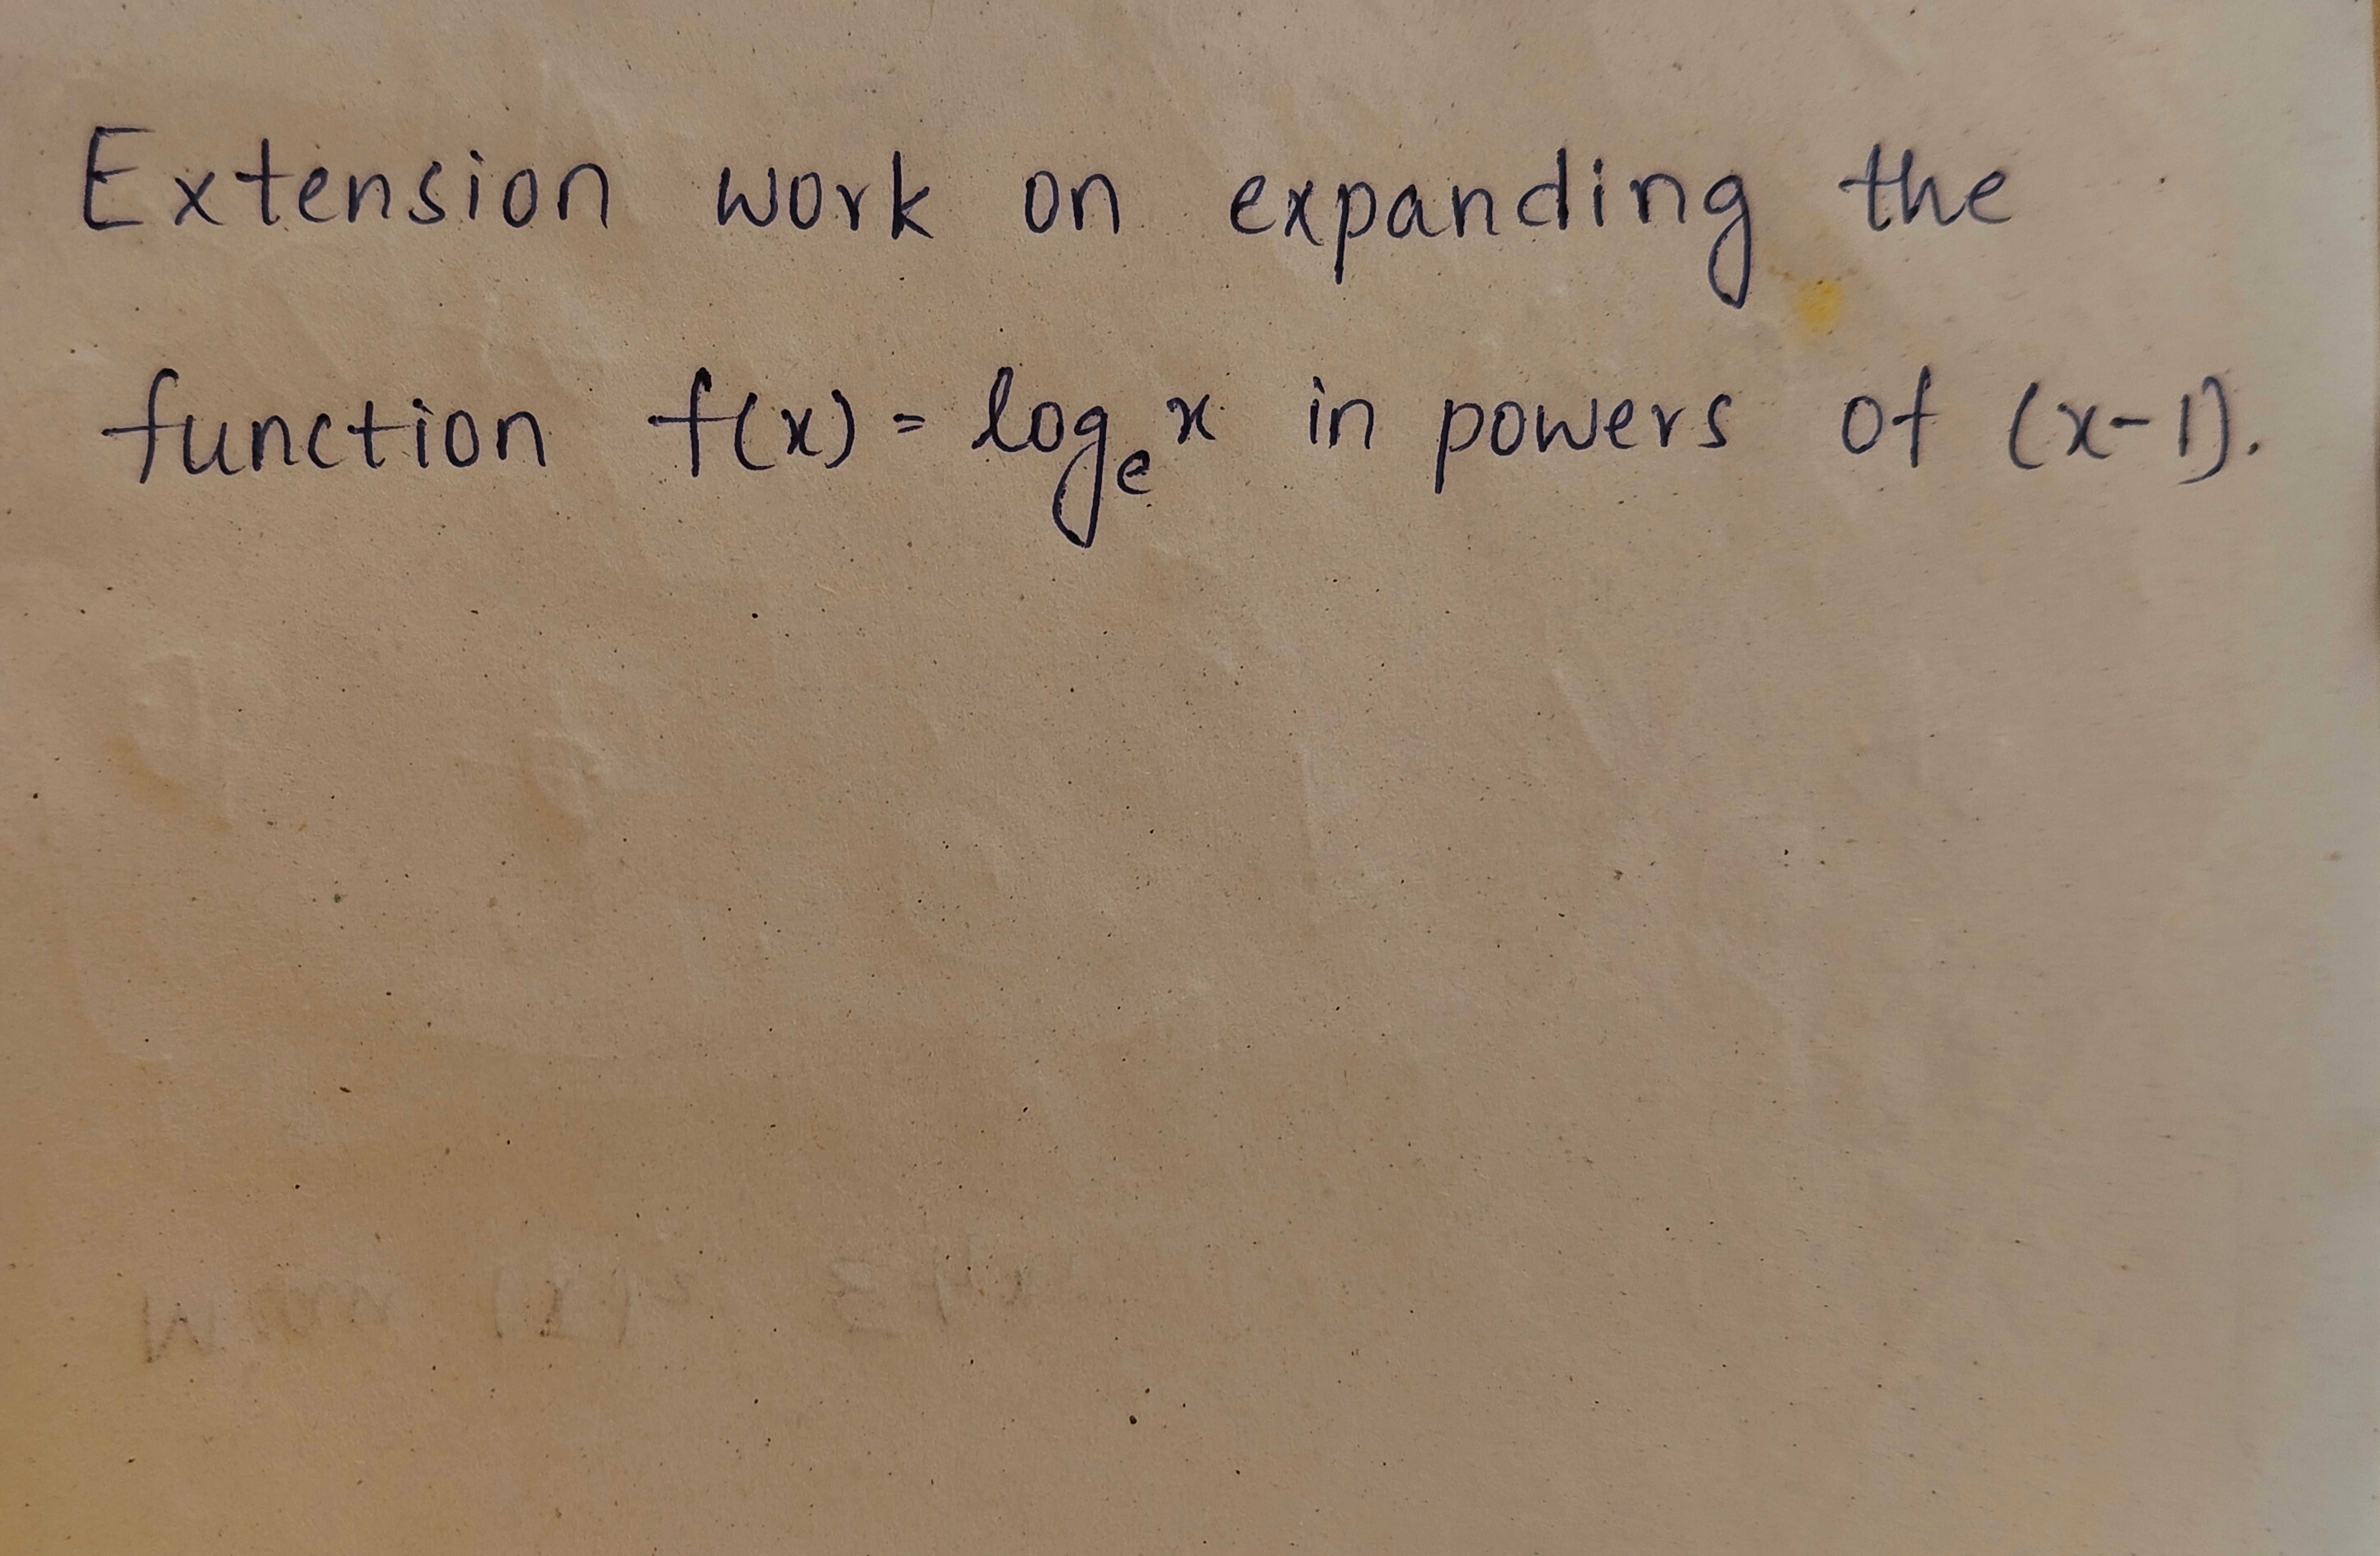 Extension work on expanding the
function f(x) = logₑx in powers of (x-1).